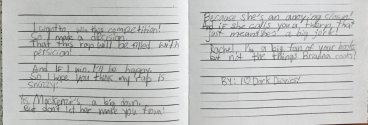 I wanna win this competition!
So I made a decision
That this rap will be filled with
persicion!
And IF I win, I'll be happy
So I hope you think my rap is
snazzy!
Yes Mackenzie's a big
But dont let her make you frown!
Because she's an annoying clown!
And if she calls you a thorn, that
just means she's a big
Rachel, I'm a big fan of your books
but not the things Brianna cooks!
BY: I ♡ Dork Diaries!